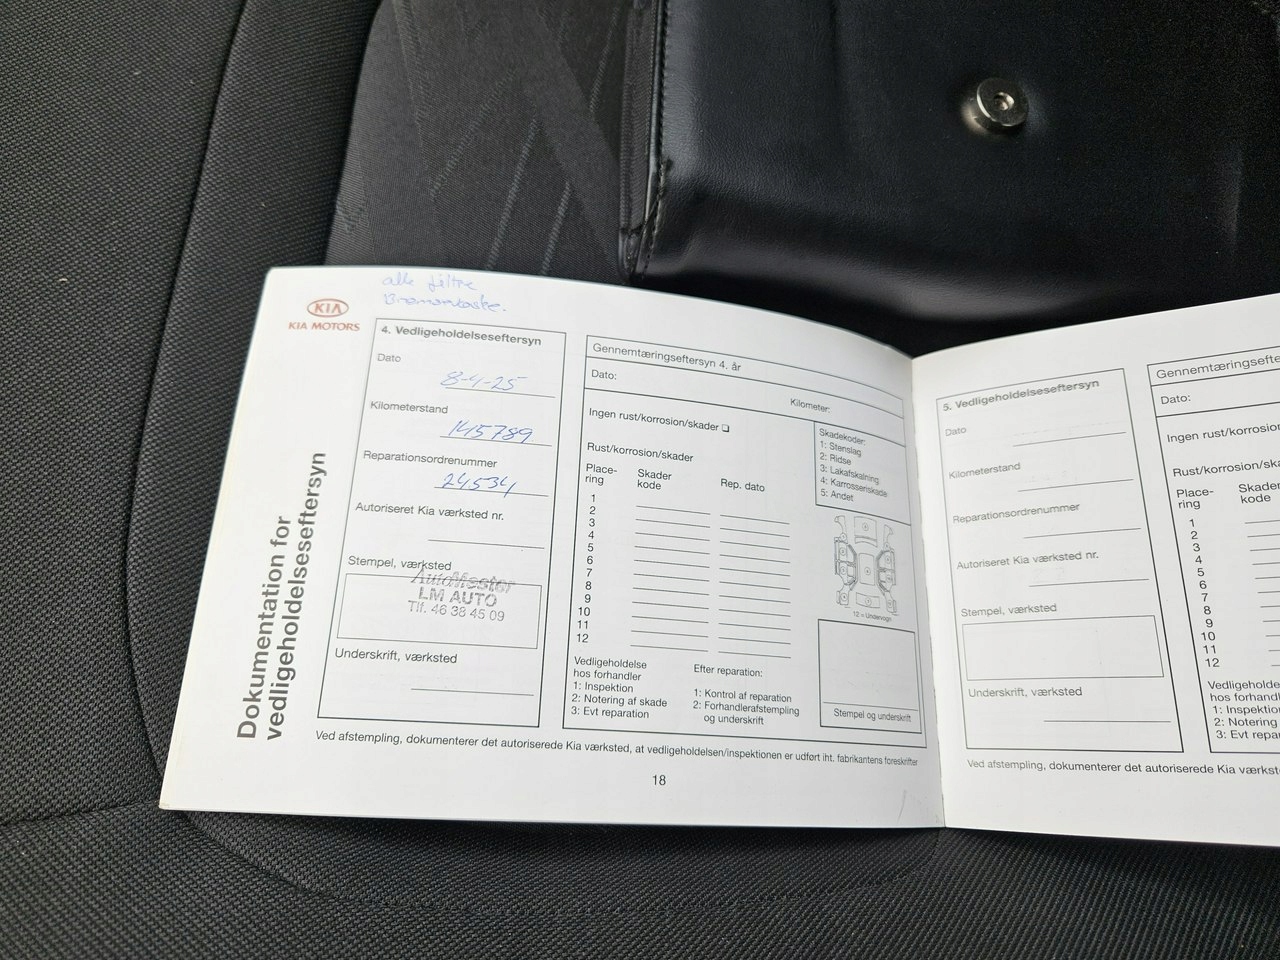 alle filtre
Bremsevæske.
KIA
KIA MOTORS
Dokumentation for
vedligeholdelseseftersyn
4. Vedligeholdelseseftersyn
Dato
8-4-25
Kilometerstand
145789
Reparationsordrenummer
24534
Autoriseret Kia værksted nr.
Stempel, værksted
AutoMester
LM AUTO
Tlf. 46 38 45 09
Underskrift, værksted
Gennemtæringseftersyn 4. år
Dato:
Kilometer:
Ingen rust/korrosion/skader
Rust/korrosion/skader
Place-
ring
Skader
kode
Rep. dato
1
2
3
4
5
6
7
8
9
10
11
12
Skadekoder:
1: Stenslag
2: Ridse
3: Lakafskalning
4: Karrosseriskade
5: Andet
12 = Undervogn
Vedligeholdelse
hos forhandler
1: Inspektion
2: Notering af skade
3: Evt reparation
Efter reparation:
1: Kontrol af reparation
2: Forhandlerafstempling
og underskrift
Stempel og underskrift
Ved afstempling, dokumenterer det autoriserede Kia værksted, at vedligeholdelsen/inspektionen er udført iht. fabrikantens foreskrifter
18
5. Vedligeholdelseseftersyn
Dato
Kilometerstand
Reparationsordrenummer
Autoriseret Kia værksted nr.
Stempel, værksted
Underskrift, værksted
Gennemtæringsefte
Dato:
Ingen rust/korrosion
Rust/korrosion/ska
Place-
ring
Skader
kode
1
2
3
4
5
6
7
8
9
10
11
12
Vedligeholde
hos forhandl
1: Inspektio
2: Notering
3: Evt repa
Ved afstempling, dokumenterer det autoriserede Kia værkst